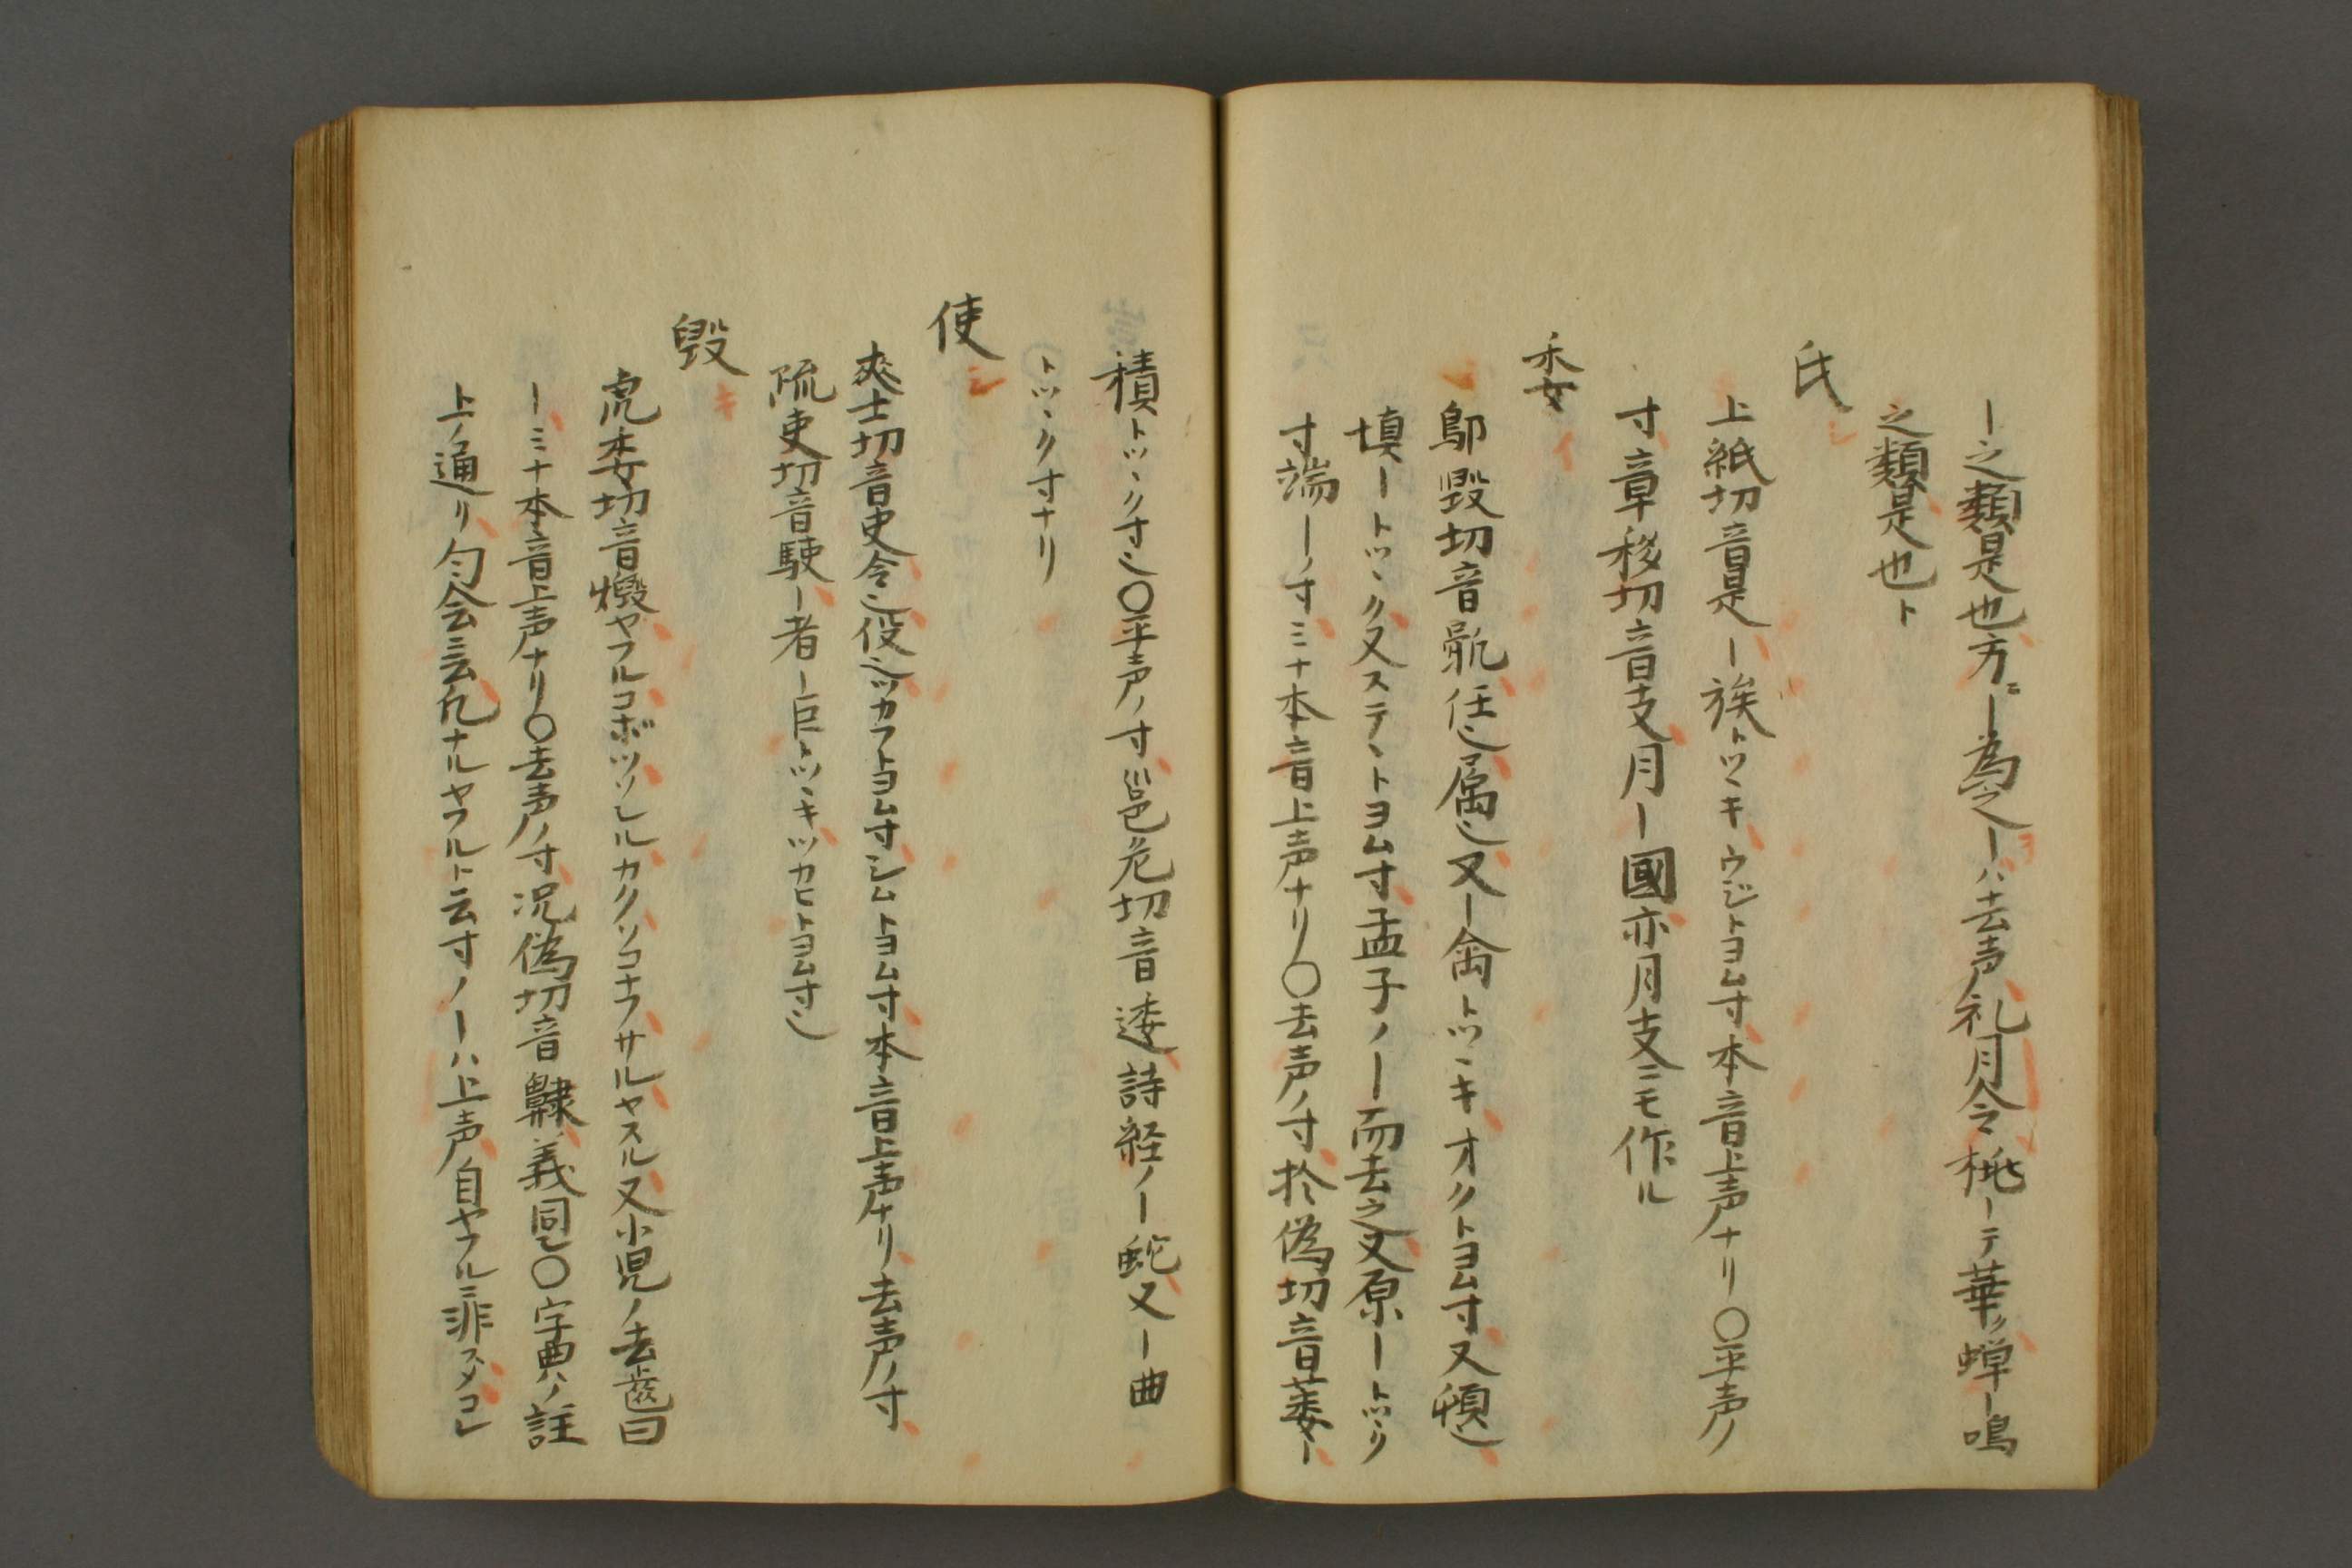 ー之類是也方ニー為之ーハ去声礼月令桃ーテ華ク蝉ー鳴
之類是也ト
氏シ
上紙切音是ー族トツヾキウジトヨム寸本音上声ナリ〇平声ノ
寸章移切音支月ー國亦月支ニモ作ル
委イ
鄔毀切音骫任也属也又ー禽トツヾキオクトヨム寸又頓也
填ートツヾク又ステヽトヨム寸孟子ノー而去之又原ートツヾク
寸端ーノ寸ミナ本音上声ナリ〇去声ノ寸於偽切音萎ー
積トツヾク寸也〇平声ノ寸邕危切音逶詩経ノー蛇又ー曲
トツヾク寸ナリ
使シ
爽士切音史令也役也ツカフトヨム寸シムトヨム寸本音上声ナリ去声ノ寸
疏吏切音駛ー者ー臣トツヾキツカヒトヨム寸也
毀キ
虎委切音燬ヤブルコボツソシルカクソコナフサルヤスル又小児ノ去齒曰
ーミナ本音上声ナリ〇去声ノ寸況偽切音 義同也〇字典ノ註
上ノ通リ匀会ニ云凡ナルヤブルト云寸ノーハ上声自ヤブルニ非スメコレ